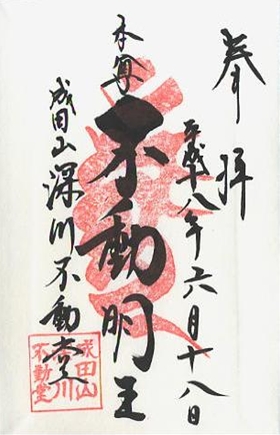 奉拝
平成十八年六月十八日
本尊
不動明王
成田山深川不動堂
成田山
深川
不動堂